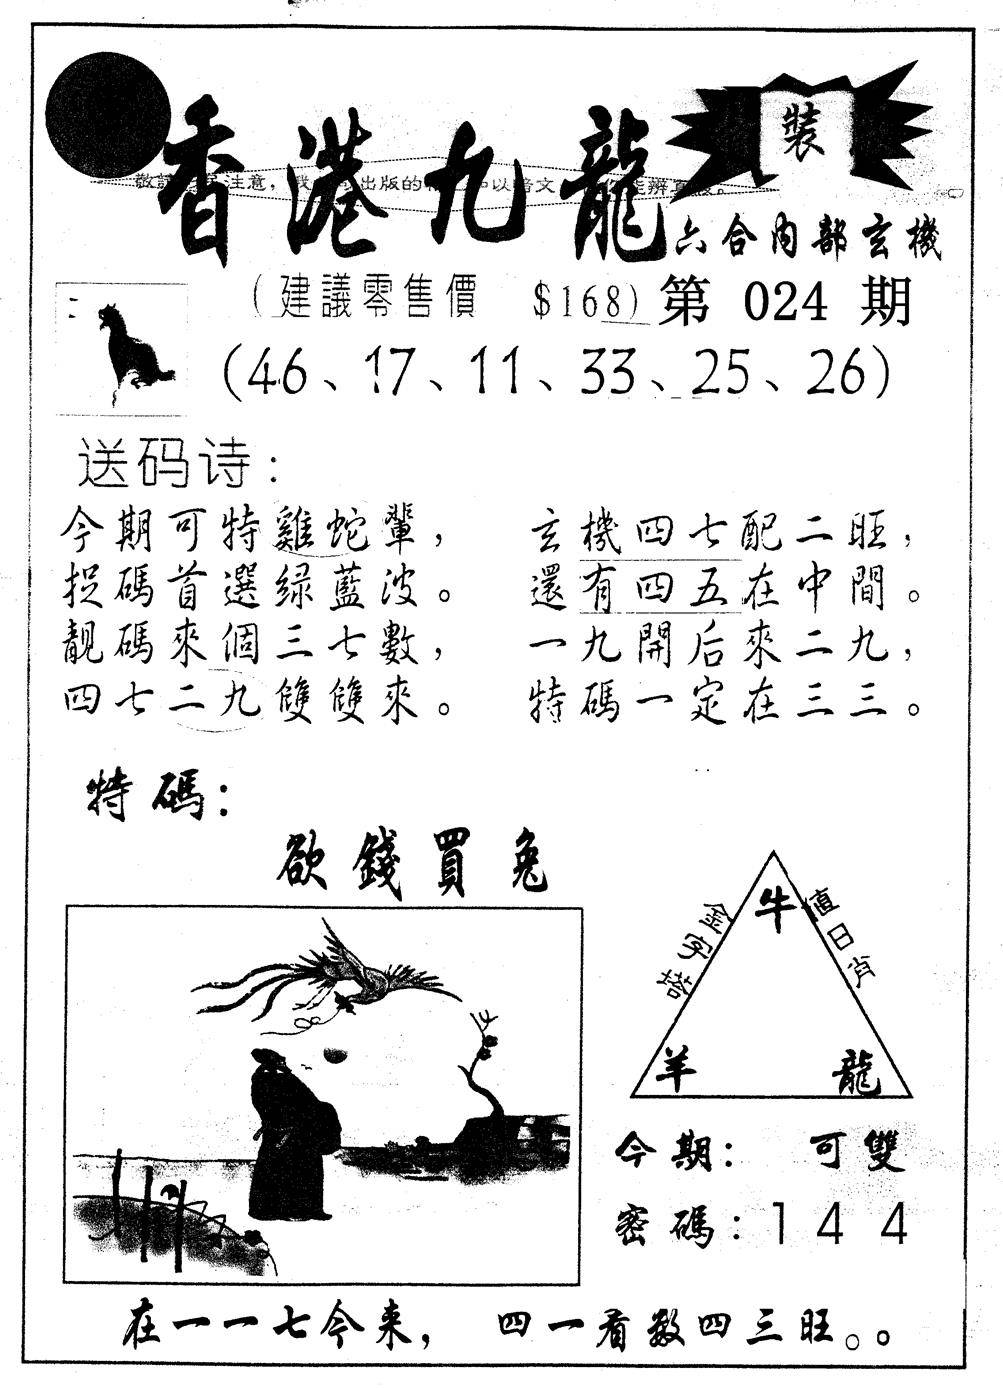 香港九龍
裝
六合内部玄機
(建議零售價 $168) 第 024 期
(46、17、11、33、25、26)
送码诗:
今期可特雞蛇輩, 玄機四七配二旺,
捉碼首選绿藍波。 還有四五在中間。
靚碼來個三七數, 一九開后來二九,
四七二九雙雙來。 特碼一定在三三。
特碼:
欲錢買兔
金字塔 牛 值日肖
羊 龍
今期: 可雙
密碼:144
在一一七今来, 四一看数四三旺。。